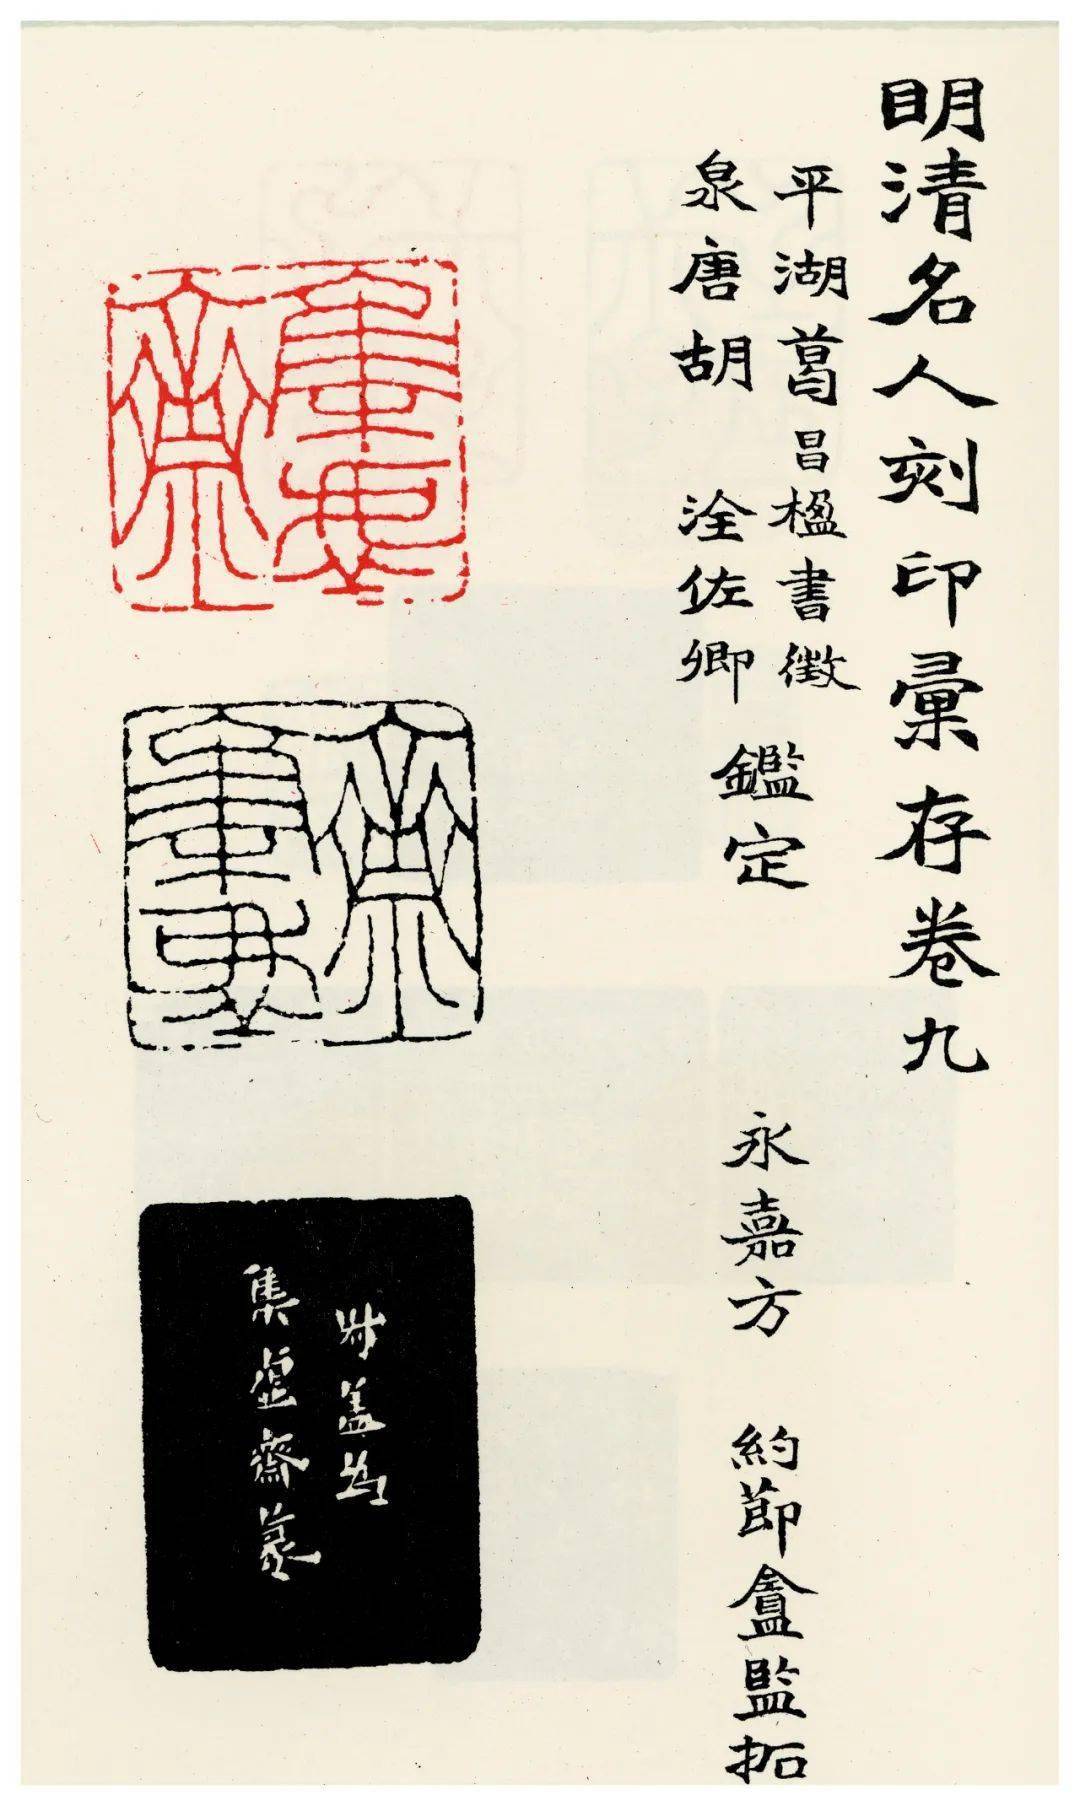 明清名人刻印彙存卷九
平湖葛昌楹書徵
泉唐胡 洤佐卿
鑑定
永嘉方 約節盦監拓
叔盖為
集虛齋篆